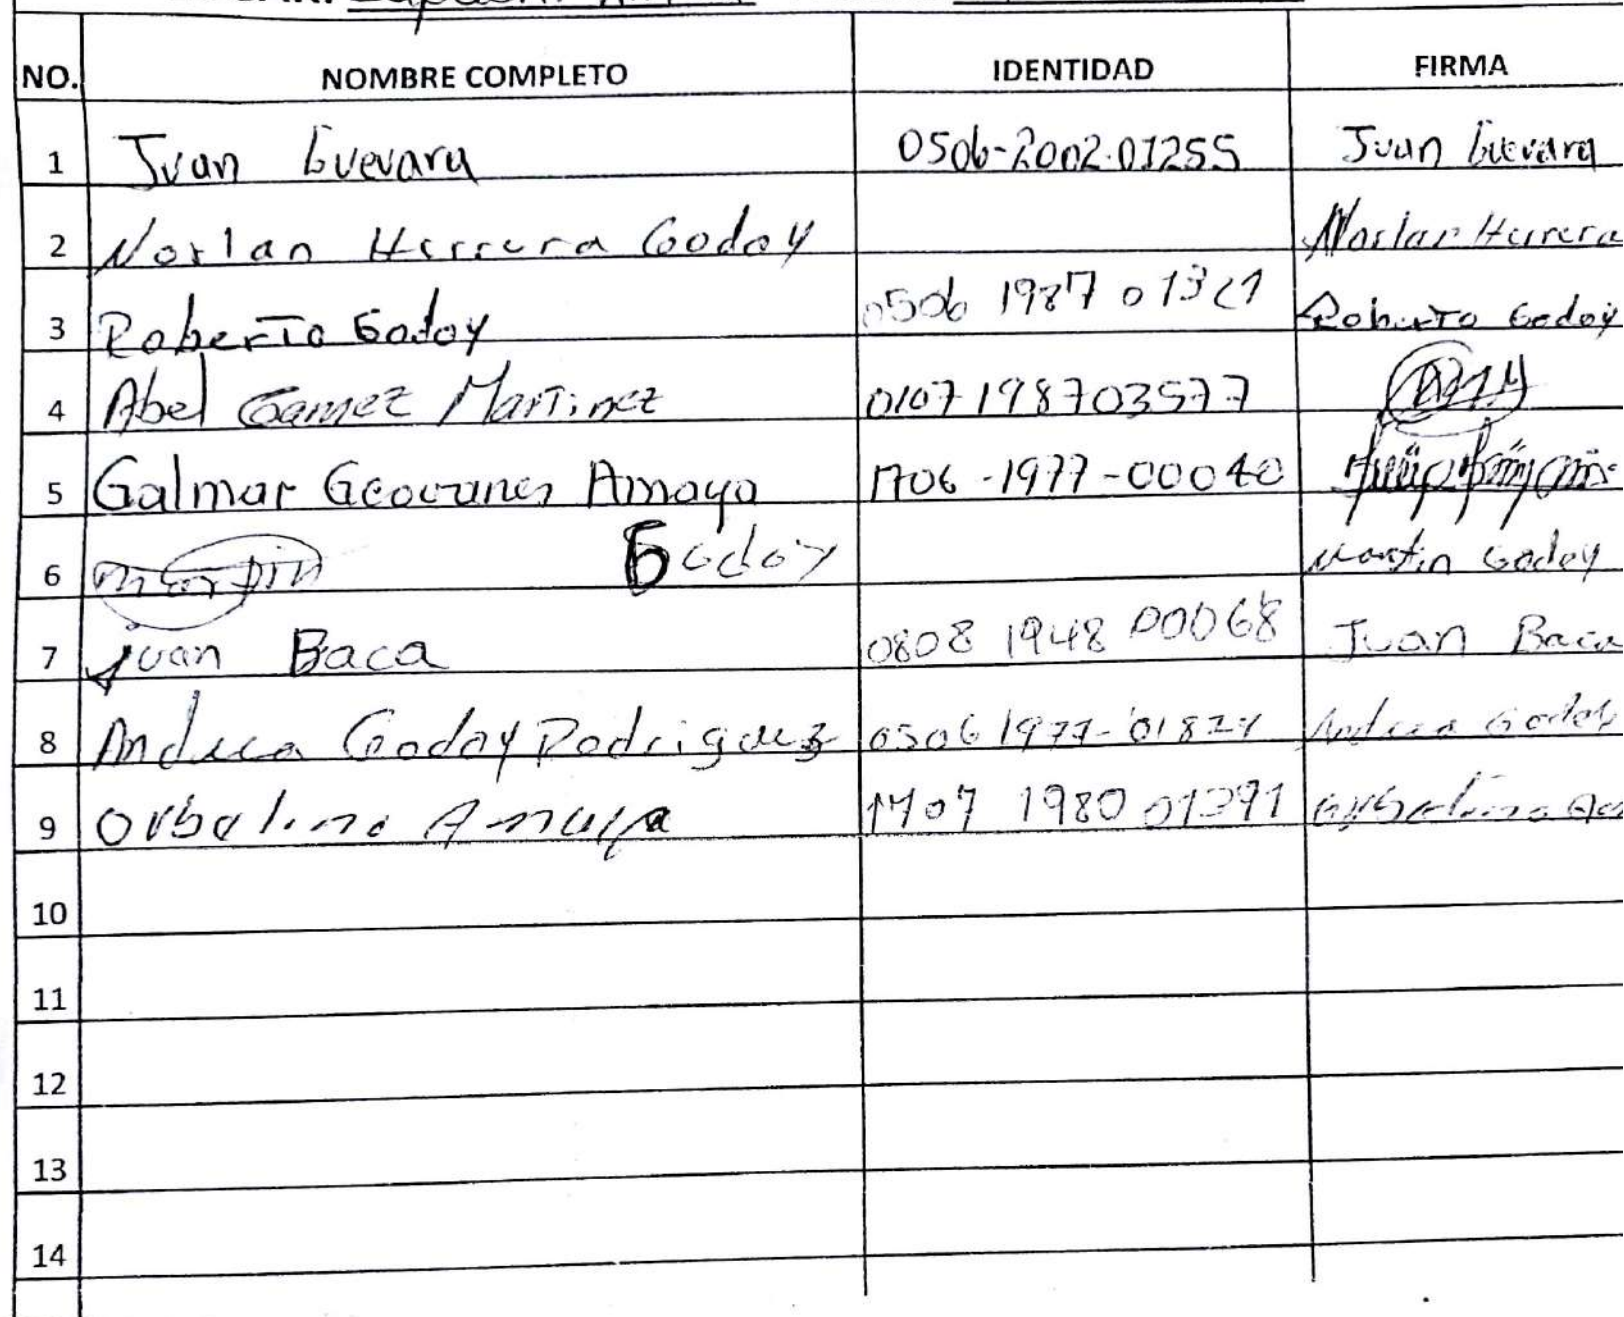 NO. NOMBRE COMPLETO IDENTIDAD FIRMA
1 Juan Guevara 0506-2002-01255 Juan Guevara
2 Norlan Herrera Godoy Norlan Herrera
3 Roberto Godoy 0506 1987 01321 Roberto Godoy
4 Abel Gamez Martinez 0107198703577
5 Galmar Geovanes Amaya 1706-1977-00040
6 martin Godoy Martin Godoy
7 Juan Baca 0808 1948 00068 Juan Baca
8 Andrea Godoy Rodriguez 0506 1977-01824 Andrea Godoy
9 Orbelina Amaya 1707 1980 01391 Orbelina
10
11
12
13
14